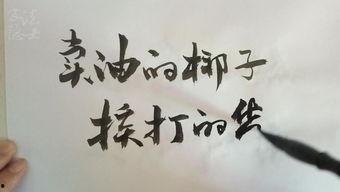 卖油的梆子
挨打的